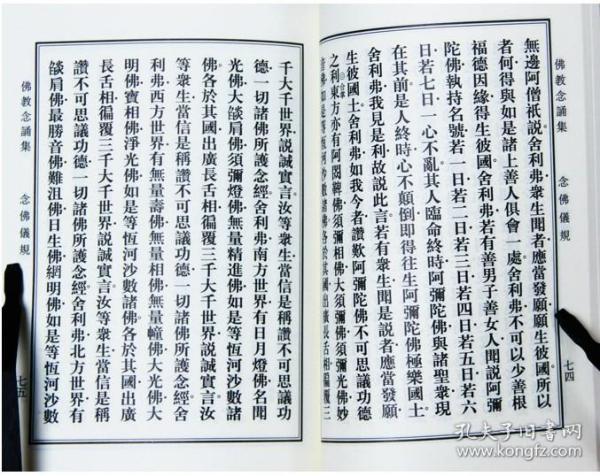 佛教念誦集 念佛儀規 七四
無邊阿僧祇說舍利弗衆生聞者應當發願願生彼國所以
者何得與如是諸上善人俱會一處舍利弗不可以少善根
福德因緣得生彼國舍利弗若有善男子善女人聞說阿彌
陀佛執持名號若一日若二日若三日若四日若五日若六
日若七日一心不亂其人臨命終時阿彌陀佛與諸聖衆現
在其前是人終時心不顛倒即得往生阿彌陀佛極樂國土
舍利弗我見是利故說此言若有衆生聞是說者應當發願
生彼國土舍利弗如我今者讚歎阿彌陀佛不可思議功德
之利東方亦有阿閦鞞佛須彌相佛大須彌佛須彌光佛妙
音佛如是等恆河沙數諸佛各於其國出廣長舌相徧覆三
千大千世界說誠實言汝等衆生當信是稱讚不可思議功
德一切諸佛所護念經舍利弗南方世界有日月燈佛名聞
光佛大燄肩佛須彌燈佛無量精進佛如是等恆河沙數諸
佛各於其國出廣長舌相徧覆三千大千世界說誠實言汝
等衆生當信是稱讚不可思議功德一切諸佛所護念經舍
利弗西方世界有無量壽佛無量相佛無量幢佛大光佛大
明佛寶相佛淨光佛如是等恆河沙數諸佛各於其國出廣
長舌相徧覆三千大千世界說誠實言汝等衆生當信是稱
讚不可思議功德一切諸佛所護念經舍利弗北方世界有
燄肩佛最勝音佛難沮佛日生佛網明佛如是等恆河沙數
佛教念誦集 念佛儀規 七五
孔夫子旧书网
www.kongfz.com